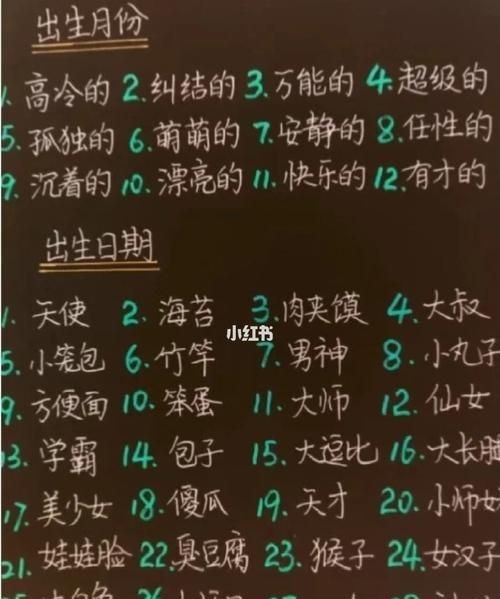 出生月份
1. 高冷的 2. 纠结的 3. 万能的 4. 超级的
5. 孤独的 6. 萌萌的 7. 安静的 8. 任性的
9. 沉着的 10. 漂亮的 11. 快乐的 12. 有才的
出生日期
1. 天使 2. 海苔 3. 肉夹馍 4. 大叔
小红书
5. 小笼包 6. 竹竿 7. 男神 8. 小丸子
9. 方便面 10. 笨蛋 11. 大师 12. 仙女
13. 学霸 14. 包子 15. 大逗比 16. 大长腿
17. 美少女 18. 傻瓜 19. 天才 20. 小师女
21. 娃娃脸 22. 臭豆腐 23. 猴子 24. 女汉子